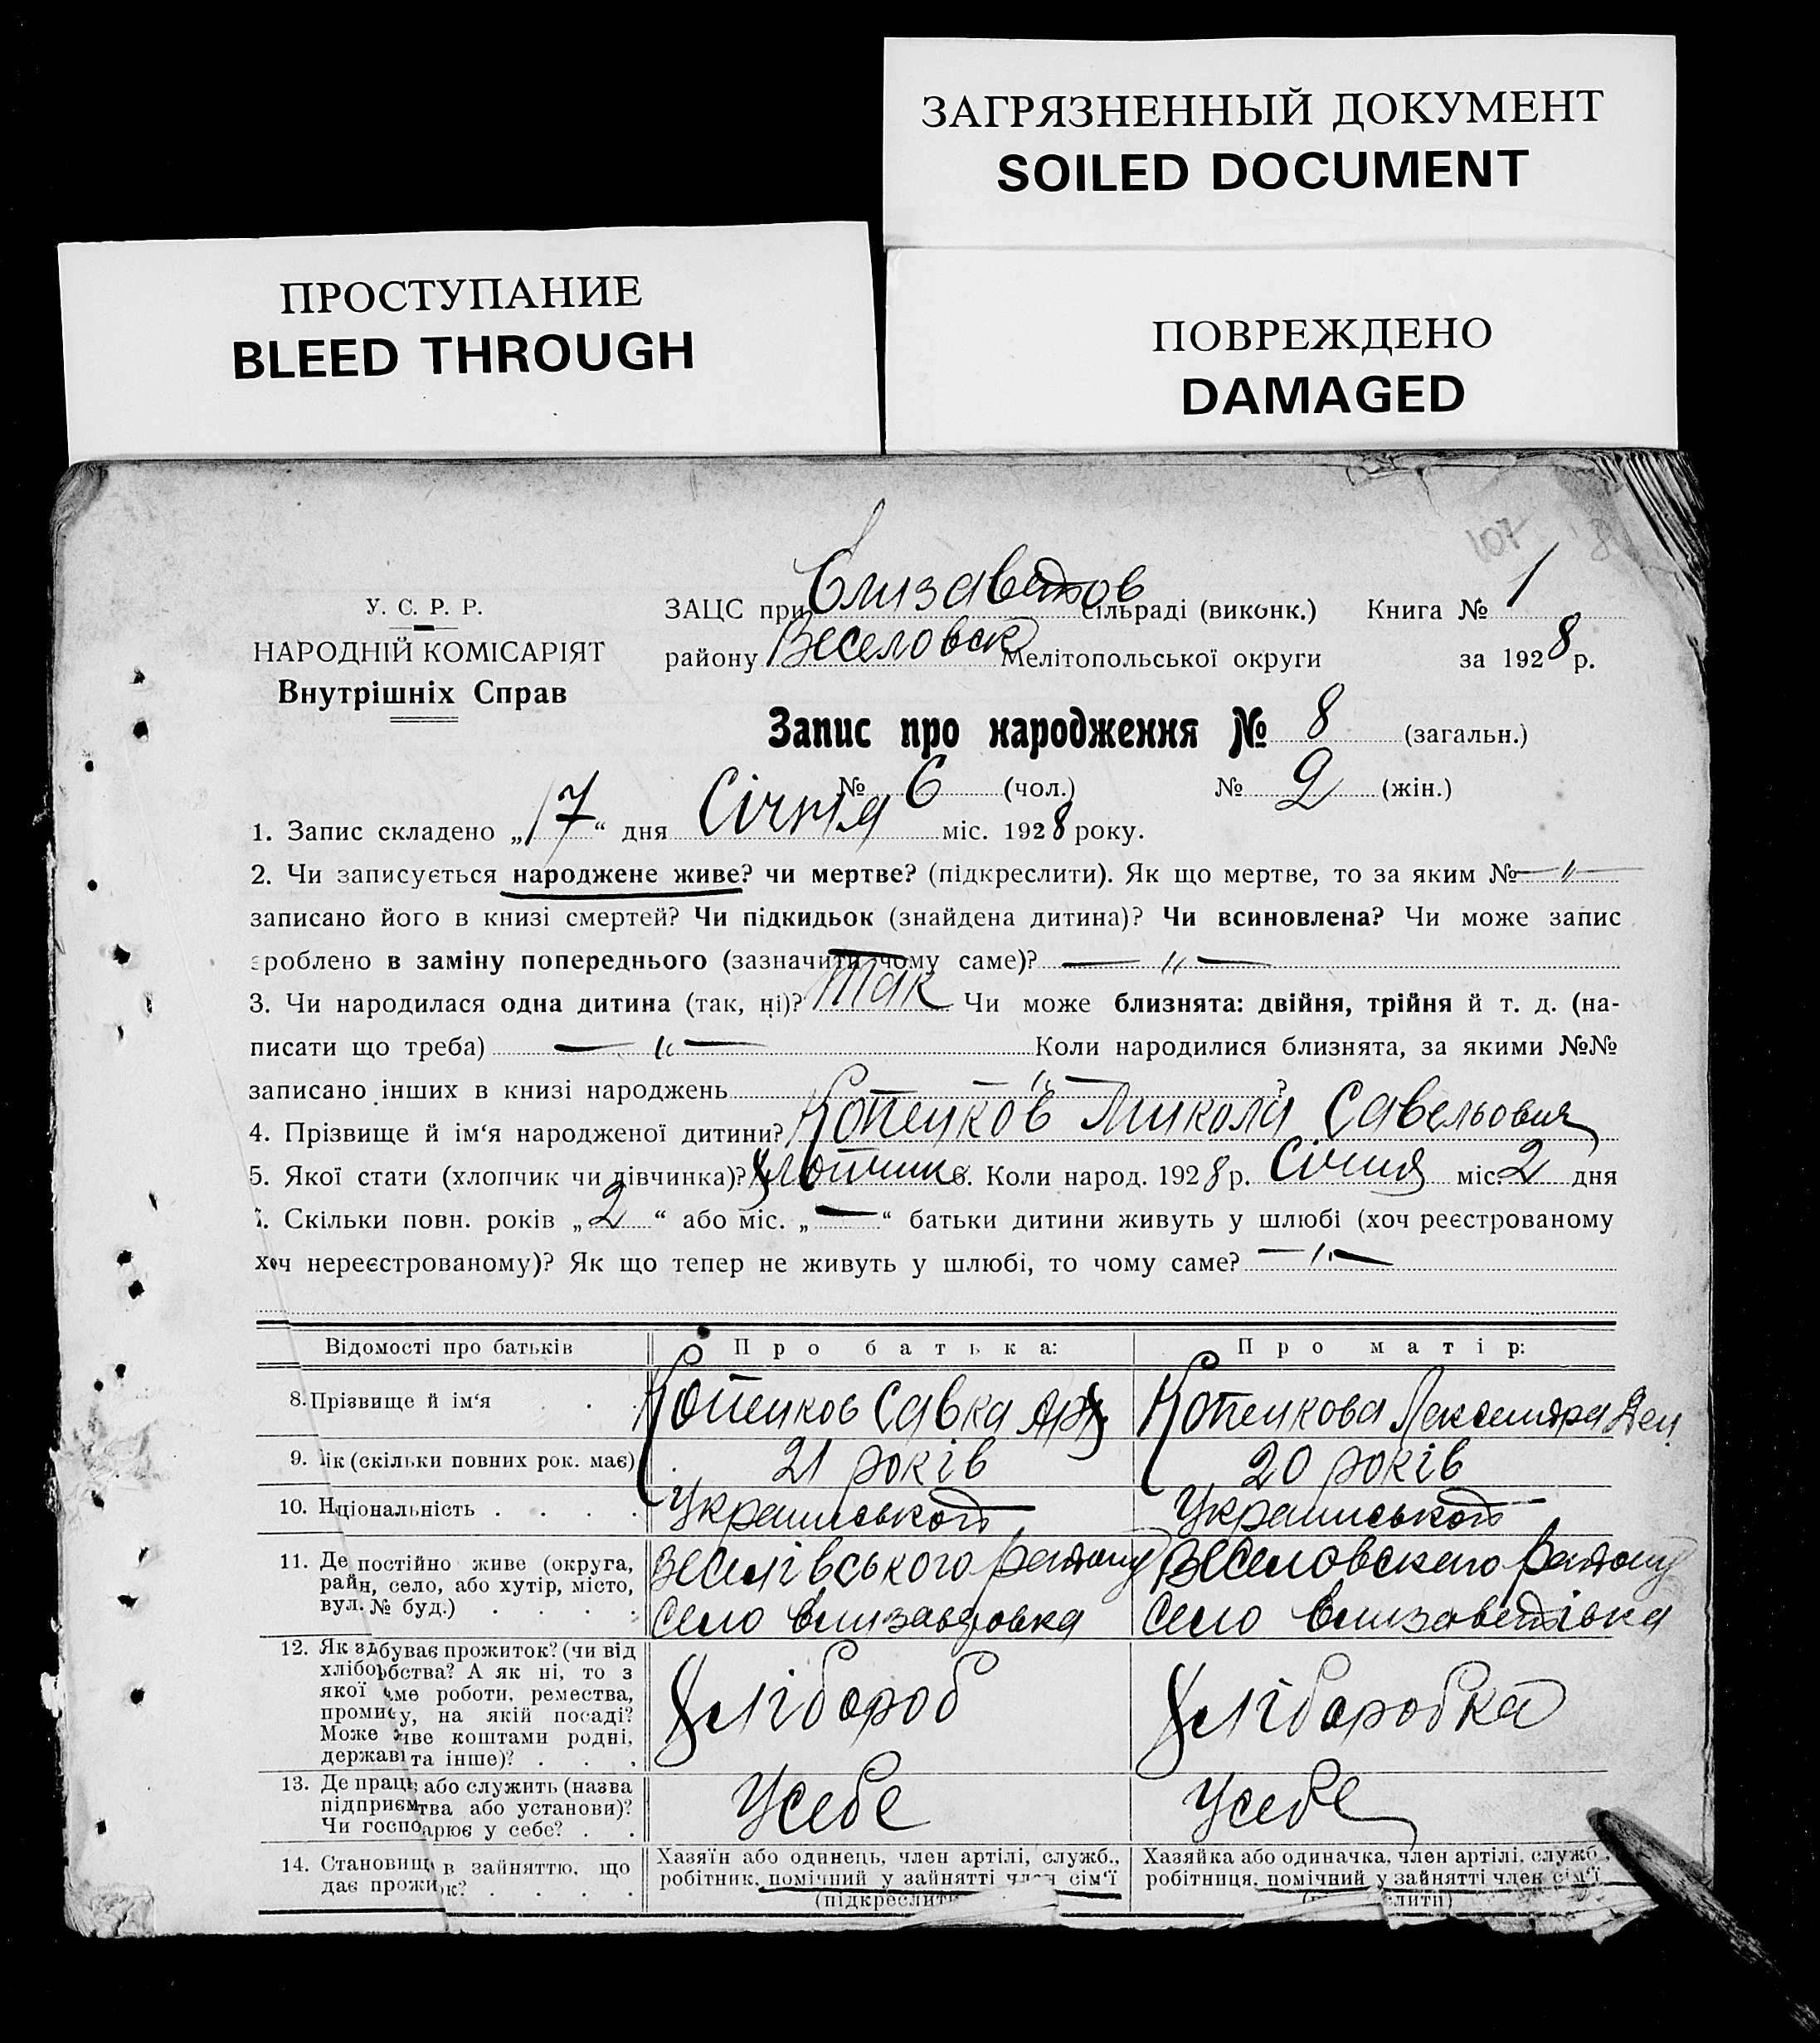 ЗАГРЯЗНЕННЫЙ ДОКУМЕНТ
SOILED DOCUMENT
ПРОСТУПАНИЕ
BLEED THROUGH
ПОВРЕЖДЕНО
DAMAGED
107
У. С. Р. Р.
НАРОДНІЙ КОМІСАРІЯТ
Внутрішніх Справ
ЗАЦС при Єлизаветов сільраді (виконк.) Книга № 1
району Веселовск Мелітопольської округи за 1928 р.
Запис про народження № 8 (загальн.)
№ 6 (чол.) № 2 (жін.)
1. Запис складено „17“ дня Січня міс. 1928 року.
2. Чи записується народжене живе? чи мертве? (підкреслити). Як що мертве, то за яким № —„—
записано його в книзі смертей? Чи підкидьок (знайдена дитина)? Чи всиновлена? Чи може запис
зроблено в заміну попереднього (зазначити чому саме)? —„—
3. Чи народилася одна дитина (так, ні)? Так Чи може близнята: двійня, трійня й т. д. (на-
писати що треба) —„— Коли народилися близнята, за якими №№
записано інших в книзі народжень —„— ?
4. Прізвище й ім'я народженої дитини? Копенков Микола Савельович
5. Якої стати (хлопчик чи дівчинка)? Хлопчик 6. Коли народ. 1928 р. Січня міс. 2 дня
7. Скільки повн. років „2“ або міс. „—“ батьки дитини живуть у шлюбі (хоч реєстрованому
хоч нереєстрованому)? Як що тепер не живуть у шлюбі, то чому саме? —„—
Відомості про батьків Про батька: Про матір:
8. Прізвище й ім'я . . . Копенков Савка Копенкова Лександра Ден.
9. Вік (скільки повних рок. має) 21 років 20 років
10. Національність . . . . Украинськой Украинськой
11. Де постійно живе (округа,
район, село, або хутір, місто,
вул. № буд.) . . . .
Веселівського району
село Елизаветовка
Веселовского району
село Елизаветівка
12. Як здобуває прожиток? (чи від
хліборобства? А як ні, то з
якої саме роботи, ремества,
промислу, на якій посаді?
Може живе коштами родні,
держави та інше)? . . .
Хлібороб
Хліборобка
13. Де працює або служить (назва
підприємства або установи)?
Чи господарює у себе? . .
Усебе
Усебе
14. Становище в зайняттю, що
дає прожиток? . . . .
Хазяїн або одинець, член артілі, служб.,
робітник, помічний у зайнятті член сім'ї
(підкреслити
Хазяйка або одиначка, член артілі, служб.,
робітниця, помічний у зайнятті член сім'ї
слити)